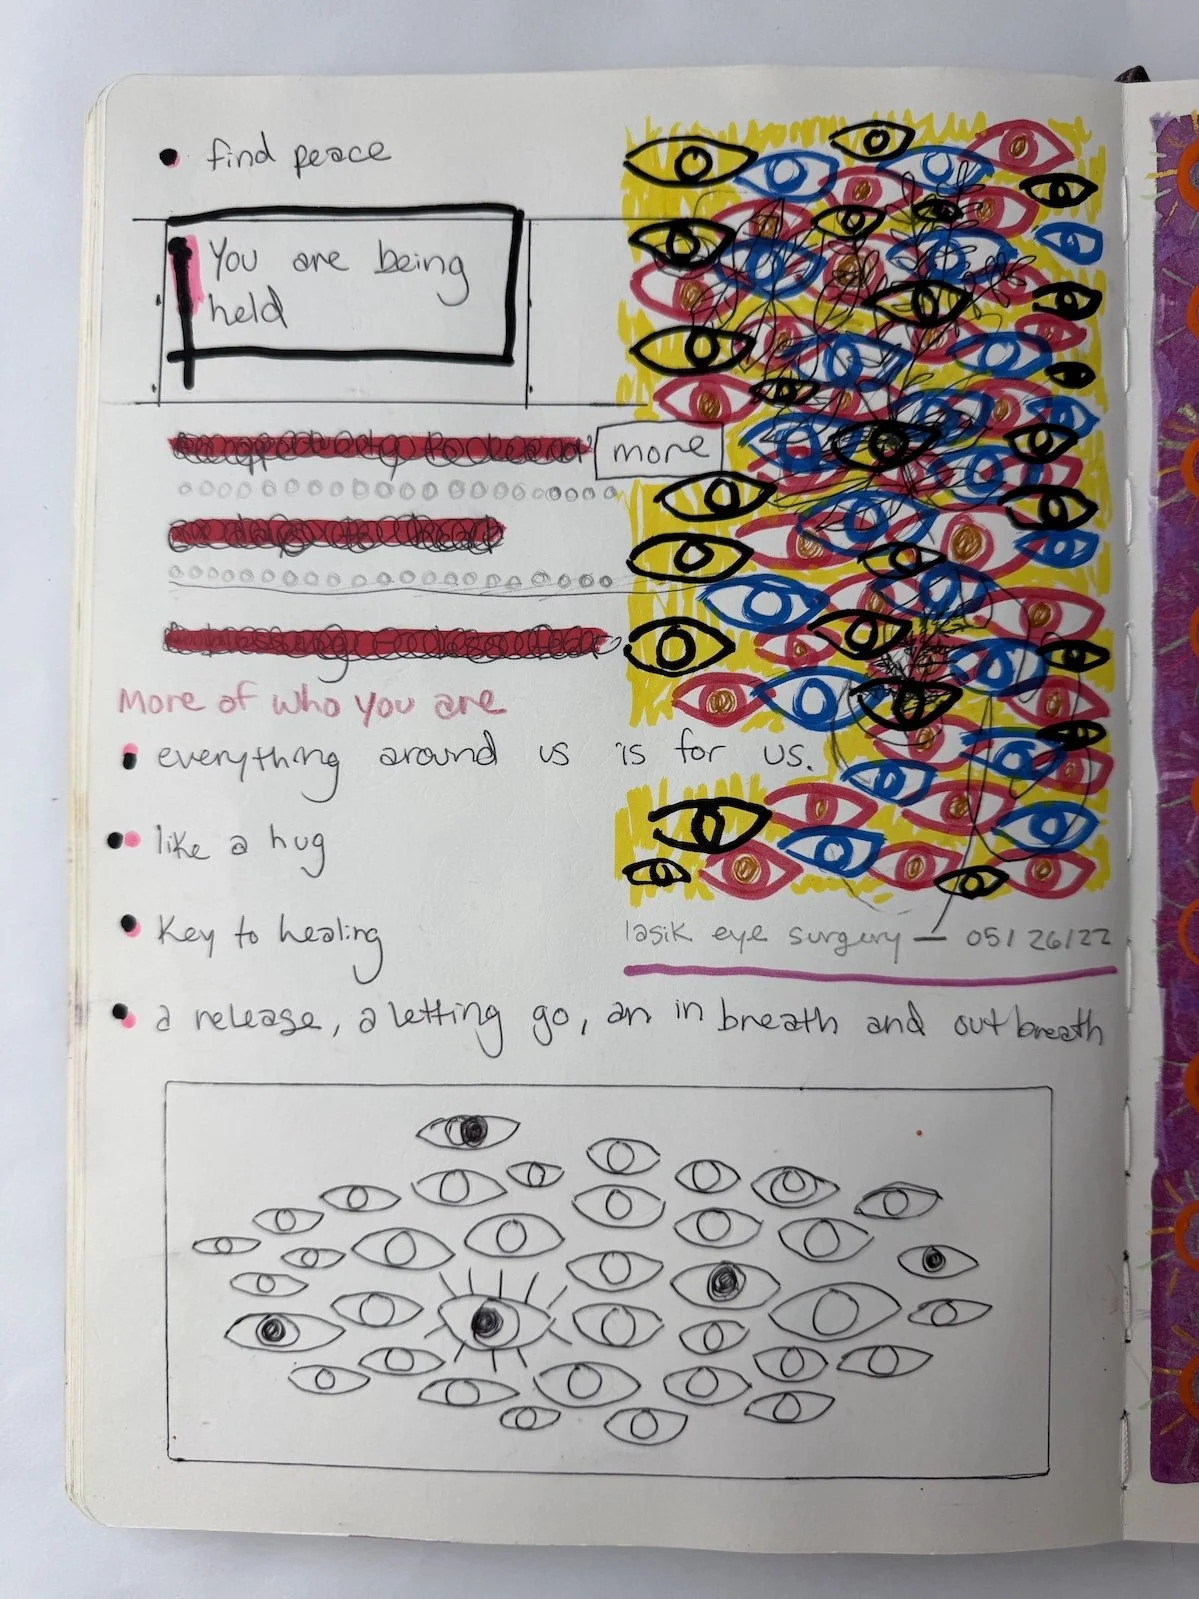 find peace
You are being
held
more
More of who you are
everything around us is for us.
like a hug
Key to healing
lasik eye surgery — 05/26/22
a release, a letting go, an in breath and out breath